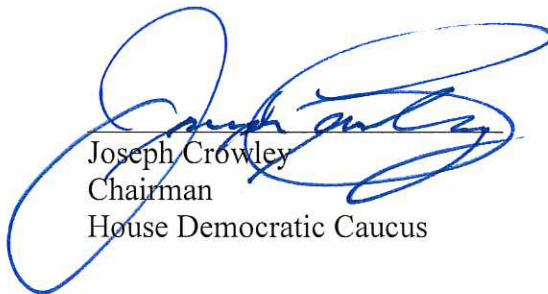 Joseph Crowley
Joseph Crowley
Chairman
House Democratic Caucus